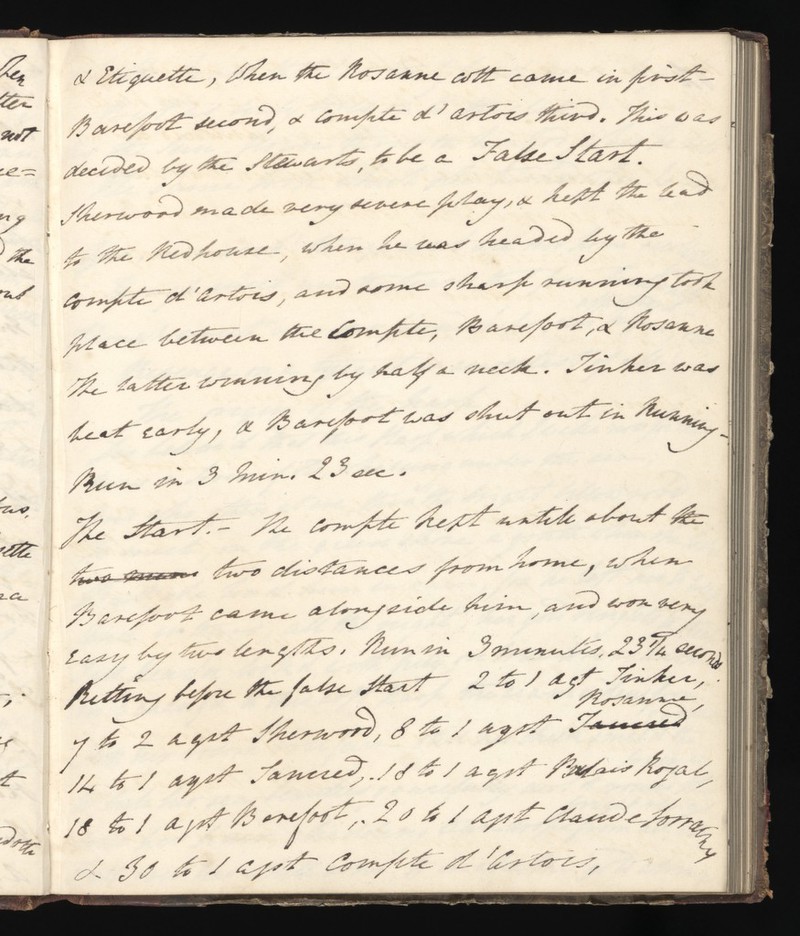 & Etiquette, When the Rosanne colt came in first-
Barefoot second, & Compte d'artois third. This was
decided by the Stewarts, to be a False Start.
Sherwood made very severe play, & kept the lead
to the Redhouse, when he was headed by the
Compte d'Artois, and some sharp running took
place between the Compte, Barefoot, & Rosanne
The latter winning by half a neck. Tinker was
beat early, & Barefoot was shut out in Running-
Run in 3 Min. 23 sec.
The Start.- The Compte kept untill about the
two distances from home, when
Barefoot came alongside him, and won very
easy by two lengths. Run in 3 minutes, 23 1/4 seconds.
Betting before the false Start 2 to 1 agt Tinker,
7 to 2 agst Sherwood, 8 to 1 agst Rosanne, Tancred
14 to 1 agst Tancred, 18 to 1 agst Palais Royal,
18 to 1 agst Barefoot, 20 to 1 agst Claude Lorrain
& 30 to 1 agst Compte d'Artois,
not
the